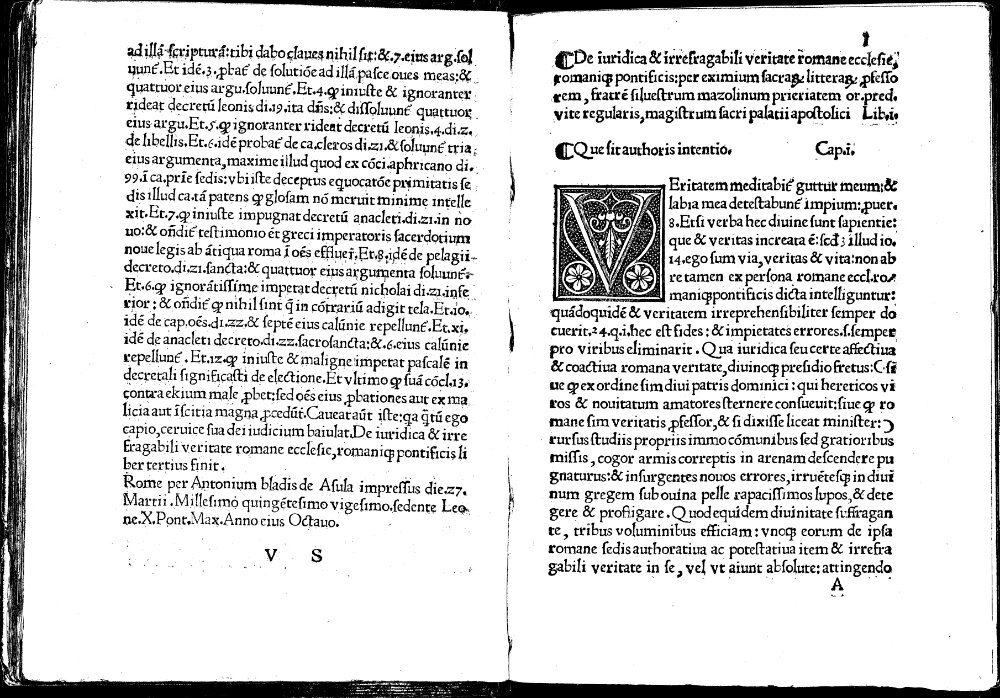 ad illā scripturā: tibi dabo claues nihil sit: &.7. eius arg. sol
uunẽ. Et idē.3. ꝓbat̃ de solutiõe ad illā. pasce oues meas: &
quattuor eius argu. soluunẽ. Et.4. ꝙ iniuste & ignoranter
rideat decretū leonis di.19. ita dñs: & dissoluunẽ quattuor
eius argu. Et.5. ꝙ ignoranter rideat decretū leonis.4. di.z.
de libellis. Et.6. idē probat̃ de ca. cleros di.z1. & soluunẽ tria
eius argumenta, maxime illud quod ex cōci. aphricano di.
99. i ca. prīe sedis: vbi iste deceptus equocatõe primitatis se
dis illud ca. tā patens ꝙ glosam nō meruit minime intelle
xit. Et.7. ꝙ iniuste impugnat decretū anacleti. di.z1. in no
uo: & oñdit̃ testimonio ēt greci imperatoris sacerdotium
noue legis ab ātiqua roma ī oēs effluer̃. Et.8. idē de pelagii
decreto. di.z1. sancta: & quattuor eius argumenta soluunẽ.
Et.6. ꝙ ignorātissime impetat decretū nicholai di.z1. infe
rior: & oñdit̃ ꝙ nihil sint q̄ in cōtrariū adigit tela. Et.10.
idē de cap. oēs. di.zz. & septē eius calūnie repellunẽ. Et.xi.
idē de anacleti decreto. di.zz. sacrosancta: &.6. eius calūnie
repellunẽ. Et.12. ꝙ iniuste & maligne impetat pascalē in
decretali significasti de electione. Et vltimo ꝙ suā cōcl.13.
contra ekium male ꝓbet: sed oēs eius ꝓbationes aut ex ma
licia aut īscitia magna ꝓcedūt. Caueat aūt iste: qa q̄tū ego
capio, ceruice sua dei iudicium baiulat. De iuridica & irre
fragabili veritate romane ecclesie, romaniqꝫ pontificis li
ber tertius finit.
Rome per Antonium bladis de Asula impressus die.27.
Martii. Millesimo quingētesimo vigesimo. sedente Leo
ne. X. Pont. Max. Anno eius Octauo.
V S
1
¶De iuridica & irrefragabili veritate romane ecclesie,
romaniqꝫ pontificis: per eximium sacraꝝ litteraꝝ ꝓfesso
rem, fratrē siluestrum mazolinum prieriatem or. pred.
vite regularis, magistrum sacri palatii apostolici Lib.i.
¶Que sit authoris intentio. Cap.i.
VEritatem meditabit̃ guttur meum: &
labia mea detestabunẽ impium: ꝓuer.
8. Etsi verba hec diuine sunt sapientie:
que & veritas increata ē: scdꝫ illud io.
14. ego sum via, veritas & vita: non ab
re tamen ex persona romane eccl. ro
maniqꝫ pontificis dicta intelliguntur:
quādoquidē & veritatem irreprehensibiliter semper do
cuerit. 24. q.i. hec est fides: & impietates errores. s. semper
pro viribus eliminarit. Qua iuridica seu certe affectiua
& coactiua romana veritate, diuinoqꝫ presidio fretus: Cſi
ue ꝙ ex ordine sim diui patris dominici: qui hereticos vi
ros & nouitatum amatores sternere consueuit: siue ꝙ ro
mane sim veritatis, ꝓfessor, & si dixisse liceat minister: Ɔ
rursus studiis propriis immo cōmunibus sed gratioribus
missis, cogor armis correptis in arenam descendere pu
gnaturus: & insurgentes nouos errores, irruētesqꝫ in diui
num gregem sub ouina pelle rapacissimos lupos, & dete
gere & profligare. Quod equidem diuinitate suffragan
te, tribus voluminibus efficiam: vnoqꝫ eorum de ipsa
romane sedis authoratiua ac potestatiua item & irrefra
gabili veritate in se, vel vt aiunt absolute: attingendo
A